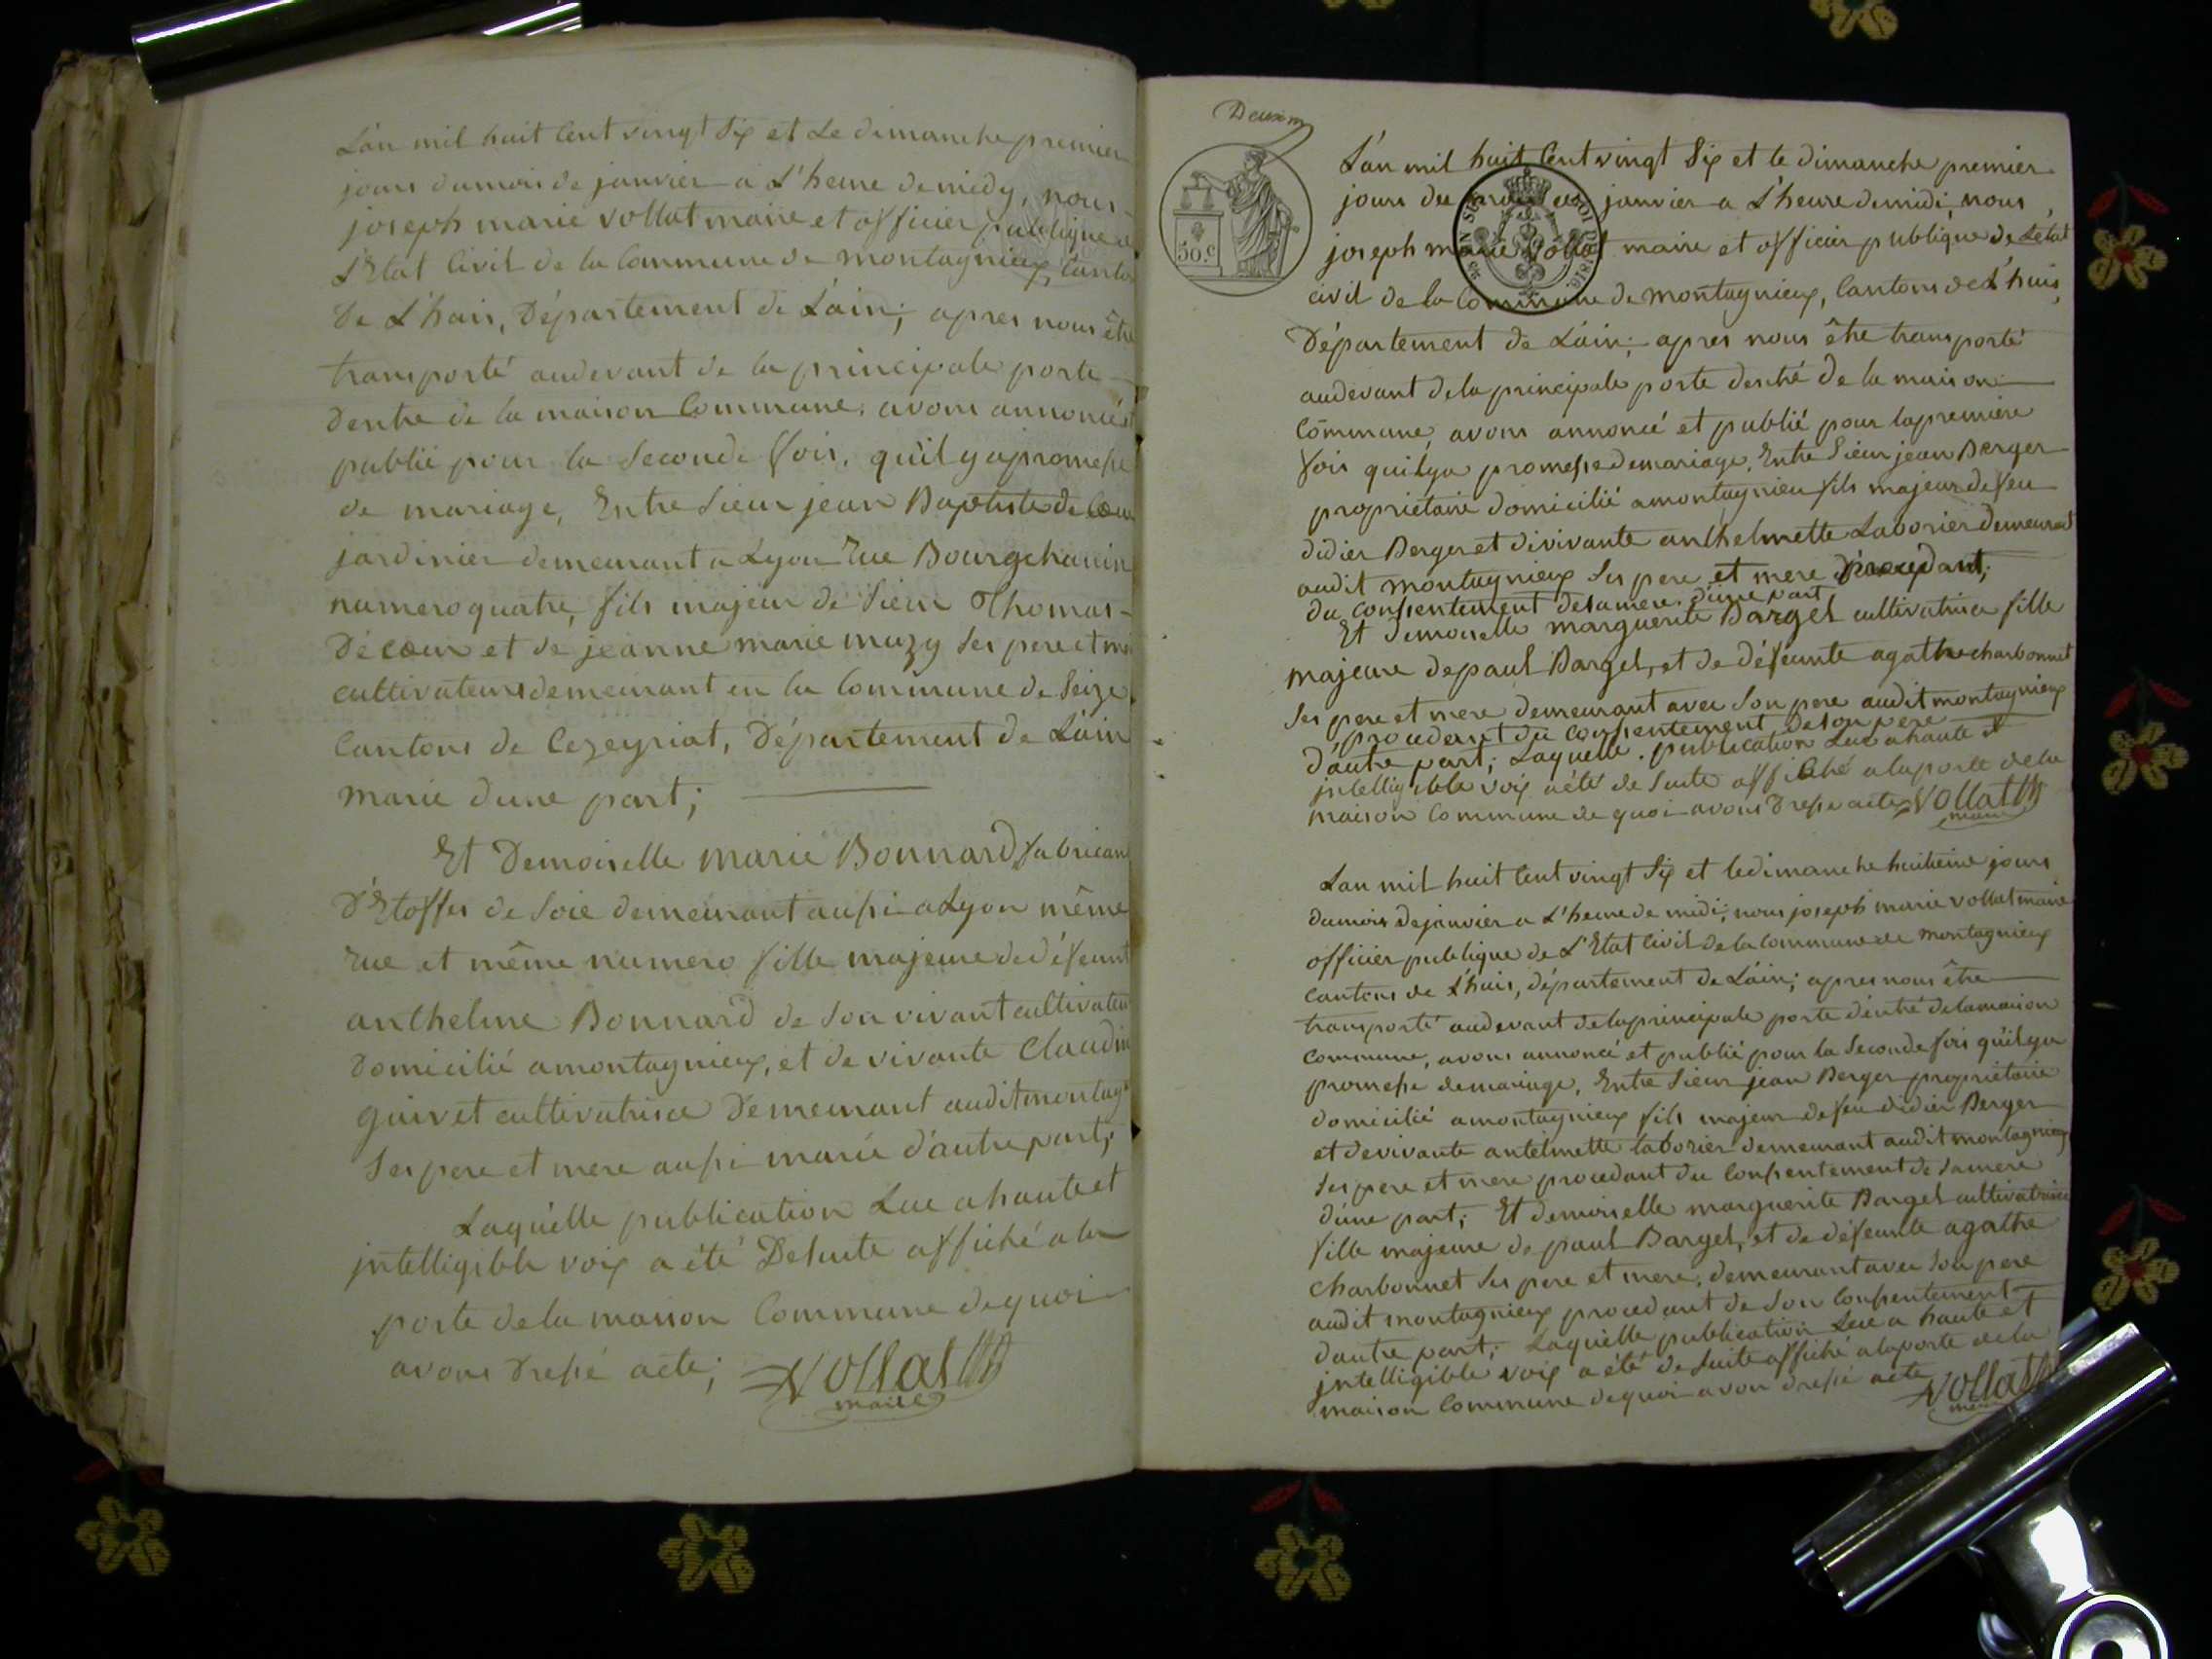 L'an mil huit Cent vingt Six et Le dimanche premier
jours du mois de janvier a L'heure de midy, nous
joseph marie vollat maire et officier publique
L'Etat Civil de la Commune de montagnieux, Canton
de L'huis, Département de L'ain; apres nous être
transporté audevant de la principale porte
dentré de la maison Commune, avons annoncé
publié pour la Seconde fois, qu'il y a promesse
de mariage, Entre Sieur jean Baptiste de Coeur
jardinier demeurant a Lyon rue Bourgchanin
numero quatre, fils majeur de Sieur Thomas
Décoeur et de jeanne marie muzy Ses pere et
cultivateurs demeurant en la Commune de Seize
Cantons de Cezeyriat, Département de L'ain
marie dune part;
Et Demoiselle marie Bonnard fabrican
D'Etoffes de Soie demeurant aussi a Lyon même
rue et même numero fille majeure de défunt
anthelme Bonnard de Son vivant cultivateur
domicilié a montagnieux, et de vivante Claudin
guivet cultivatrice demeurant audit montag
Ses pere et mere aussi marie d'autre part;
Laquelle publication Lue a haute et
intelligible voix a été De Suite affiché a la
porte de la maison Commune de quoi
avons dressé acte; Vollat
maire
Deuxm
50.c
L'an mil huit Cent vingt Six et le dimanche premier
jours du janvier a L'heure de midi, nous
joseph marie Vollat maire et officier publique de L'etat
civil de la Commune de montagnieux, Cantons de L'huis,
Département de L'ain; apres nous être transporté
audevant de la principale porte dentré de la maison
Commune, avons annoncé et publié pour la premiere
fois quil y a promesse de mariage, Entre Sieur jean Berger
propriétaire domicilié a montagnieu fils majeur de feu
didier Berger et di vivante anthelmette Laborier demeurant
audit montagnieux Ses pere et mere
du consentement de sa mere d'une part
Et demoiselle marguerite Bargel cultivatrice fille
majeure de paul Bargel, et de défunte agathe charbonnet
Ses pere et mere demeurant avec Son pere audit montagnieux
procedant du consentement de son pere
d'autre part; Laquelle publication Lue a haute et
intelligible voix a été de Suite affiché a la porte de la
maison Commune de quoi avons dressé acte Vollat
maire
L'an mil huit Cent vingt Six et le dimanche huitieme jours
du mois de janvier a L'heure de midi; nous joseph marie vollat maire
officier publique de L'Etat Civil de la Commune de montagnieux
Cantons de L'huis, département de L'ain; apres nous être
transporté audevant de la principale porte d'entré de la maison
Commune, avons annoncé et publié pour la Seconde fois qu'il y a
promesse de mariage, Entre Sieur jean Berger propriétaire
domicilié a montagnieux fils majeur de feu didier Berger
et de vivante antelmette laborier demeurant audit montagnieux
Ses pere et mere procedant du Consentement de Sa mere
d'une part; Et demoiselle marguerite Bargel cultivatrice
fille majeure de paul Bargel, et de défunte agathe
Charbonnet Ses pere et mere, demeurant avec Son pere
audit montagnieux procedant de Son Consentement
dautre part; Laquelle publication Lue a haute et
intelligible voix a été de Suite affiché a la porte de la
maison Commune de quoi avon dressé acte Vollat
maire